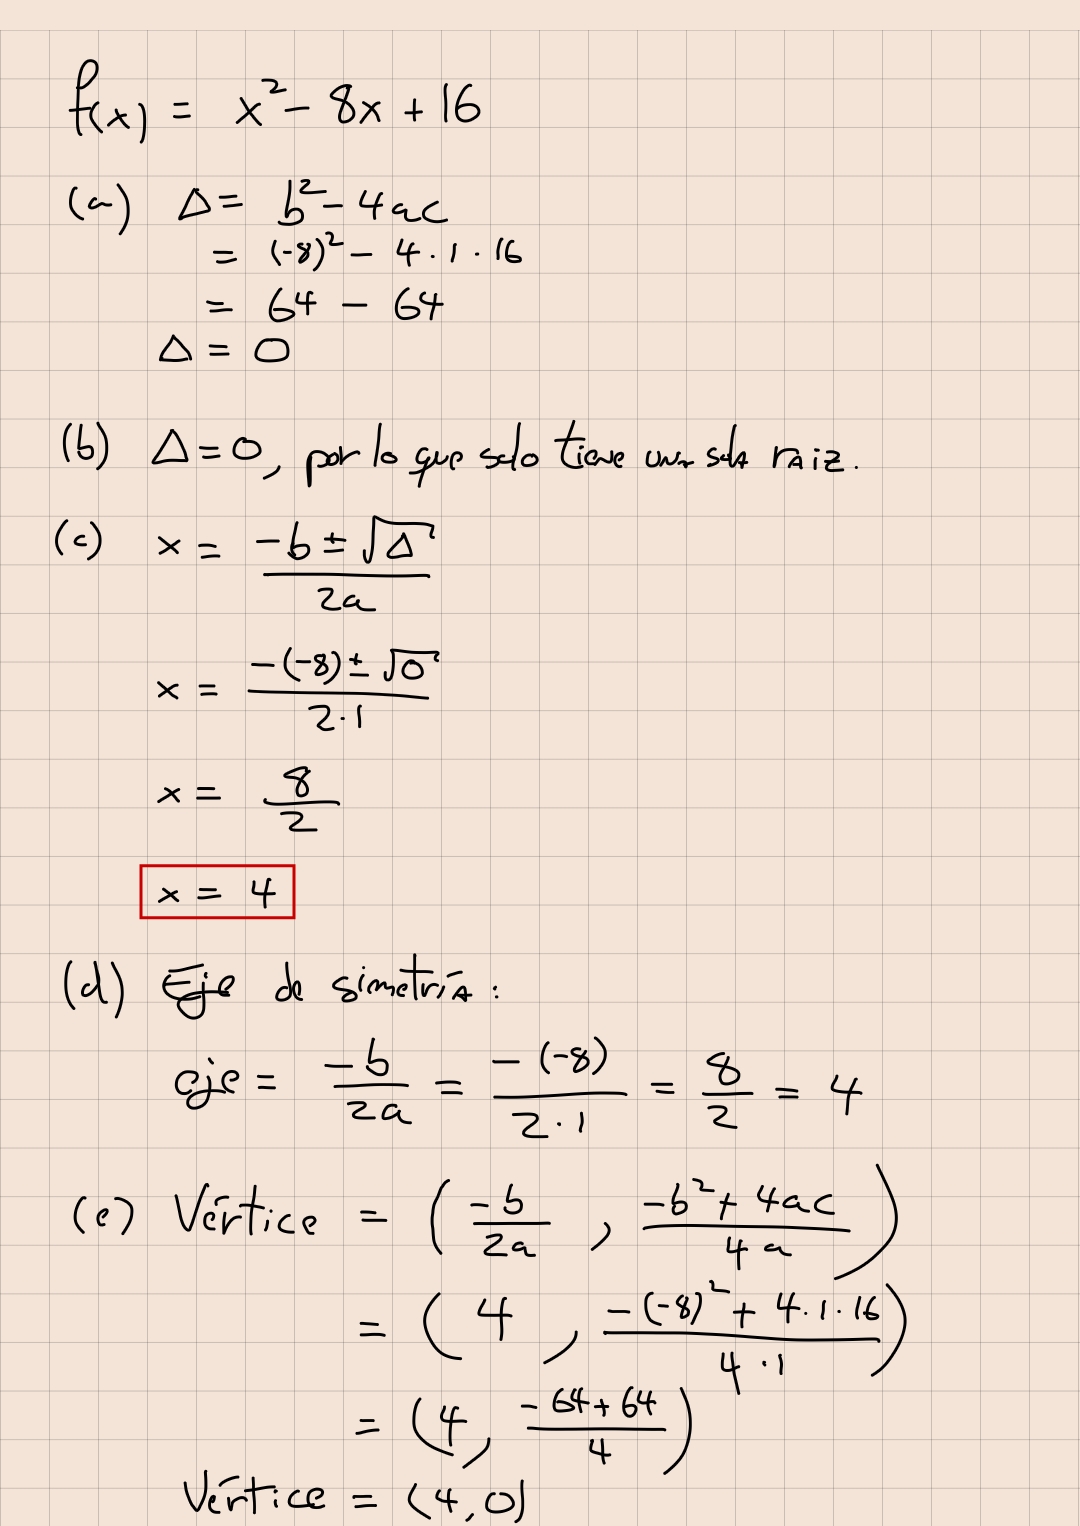 f(x) = x² - 8x + 16
(a) Δ = b² - 4ac
= (-8)² - 4 · 1 · 16
= 64 - 64
Δ = 0
(b) Δ = 0, por lo que solo tiene una sola raiz.
(c) x = (-b ± √Δ) / 2a
x = (-(-8) ± √0) / 2·1
x = 8/2
x = 4
(d) Eje de simetría:
eje = -b/2a = -(-8)/2·1 = 8/2 = 4
(e) Vértice = (-b/2a , (-b² + 4ac)/4a)
= (4 , (-(-8)² + 4·1·16)/4·1)
= (4, (-64+64)/4)
Vértice = (4,0)